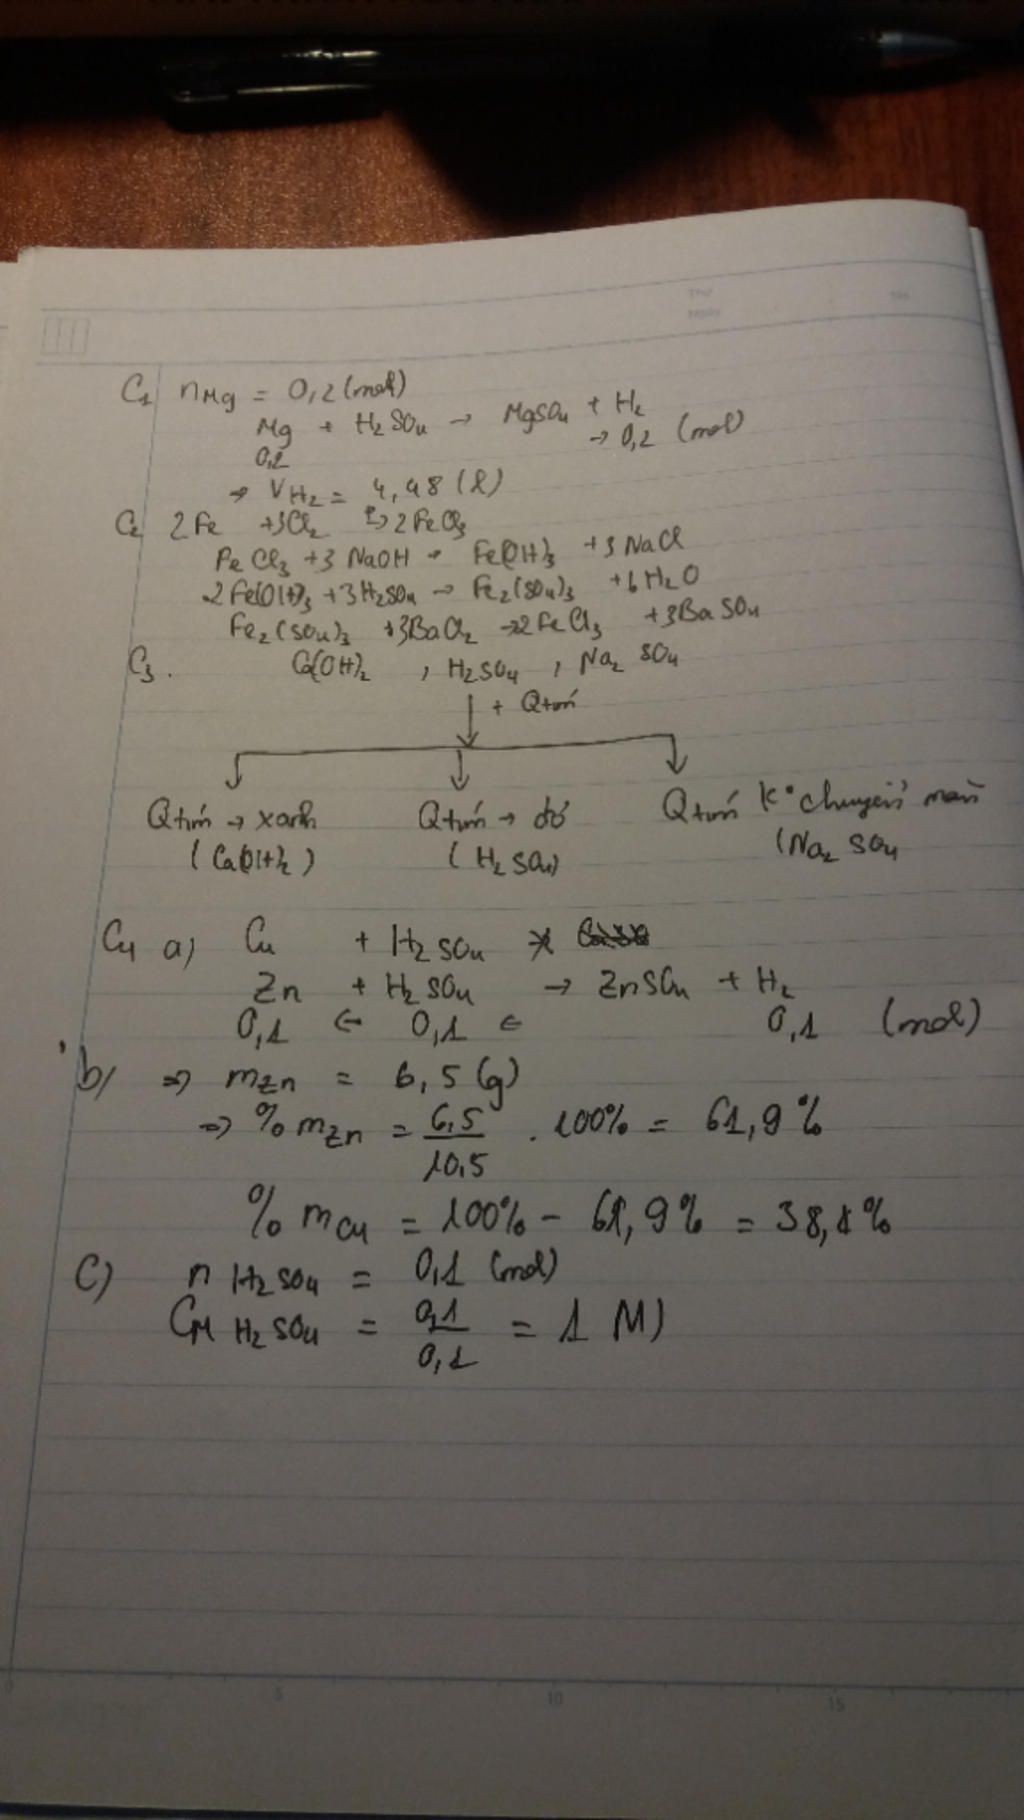 Thứ No.
Ngày
C1 nMg = 0,2 (mol)
Mg + H2SO4 → MgSO4 + H2
0,2 → 0,2 (mol)
⇒ VH2 = 4,48 (l)
C2 2Fe +3Cl2 t°→ 2FeCl3
FeCl3 +3 NaOH → Fe(OH)3 +3 NaCl
2Fe(OH)3 +3H2SO4 → Fe2(SO4)3 +6H2O
Fe2(SO4)3 +3BaCl2 →2FeCl3 +3BaSO4
C3. Ca(OH)2 , H2SO4 , Na2SO4
+ Qtím
Qtím → xanh Qtím → đỏ Qtím k° chuyển màu
(Ca(OH)2) (H2SO4) (Na2SO4
C4 a) Cu + H2SO4 ↛
Zn + H2SO4 → ZnSO4 + H2
0,1 ← 0,1 ← 0,1 (mol)
b) ⇒ mZn = 6,5 (g)
⇒ % mZn = 6,5/10,5 . 100% = 61,9%
% mCu = 100% - 61,9% = 38,1%
C) n H2SO4 = 0,1 (mol)
CM H2SO4 = 0,1/0,1 = 1 M)
0 5 10 15